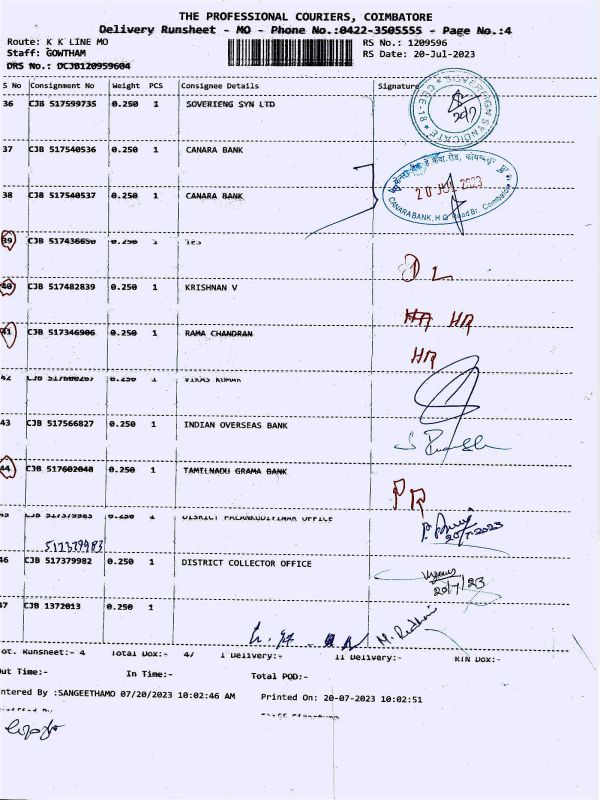 THE PROFESSIONAL COURIERS, COIMBATORE
Delivery Runsheet - MO - Phone No.:0422-3505555 - Page No.:4
Route: K K LINE MO RS No.: 1209596
Staff: GOWTHAM RS Date: 20-Jul-2023
DRS No.: DCJB120959604
S No Consignment No Weight PCS Consignee Details Signature
36 CJB 517599735 0.250 1 SOVERIENG SYN LTD
SOVEREIGN SYNDICATE * CBE-18 *
20/7
37 CJB 517540536 0.250 1 CANARA BANK
20 JUL 2023
CANARA BANK, H.O. Road Br. Coimbatore
38 CJB 517540537 0.250 1 CANARA BANK
39 CJB 517436650 0.250 1
D L
40 CJB 517482839 0.250 1 KRISHNAN V
HA HA
41 CJB 517346906 0.250 1 RAMA CHANDRAN
HA
42 CJB 0.250 1 VIKAS KUMAR
43 CJB 517566827 0.250 1 INDIAN OVERSEAS BANK
44 CJB 517602048 0.250 1 TAMILNADU GRAMA BANK
PR
45 CJB 0.250 1 DISTRICT OFFICE
20/7/2023
46 CJB 517379982 0.250 1 DISTRICT COLLECTOR OFFICE
20/7/23
47 CJB 1372013 0.250 1
Tot. Runsheet:- 4 Total Dox:- 47 I Delivery:- II Delivery:- RTN Dox:-
Out Time:- In Time:- Total POD:-
Entered By :SANGEETHAMO 07/20/2023 10:02:46 AM Printed On: 20-07-2023 10:02:51